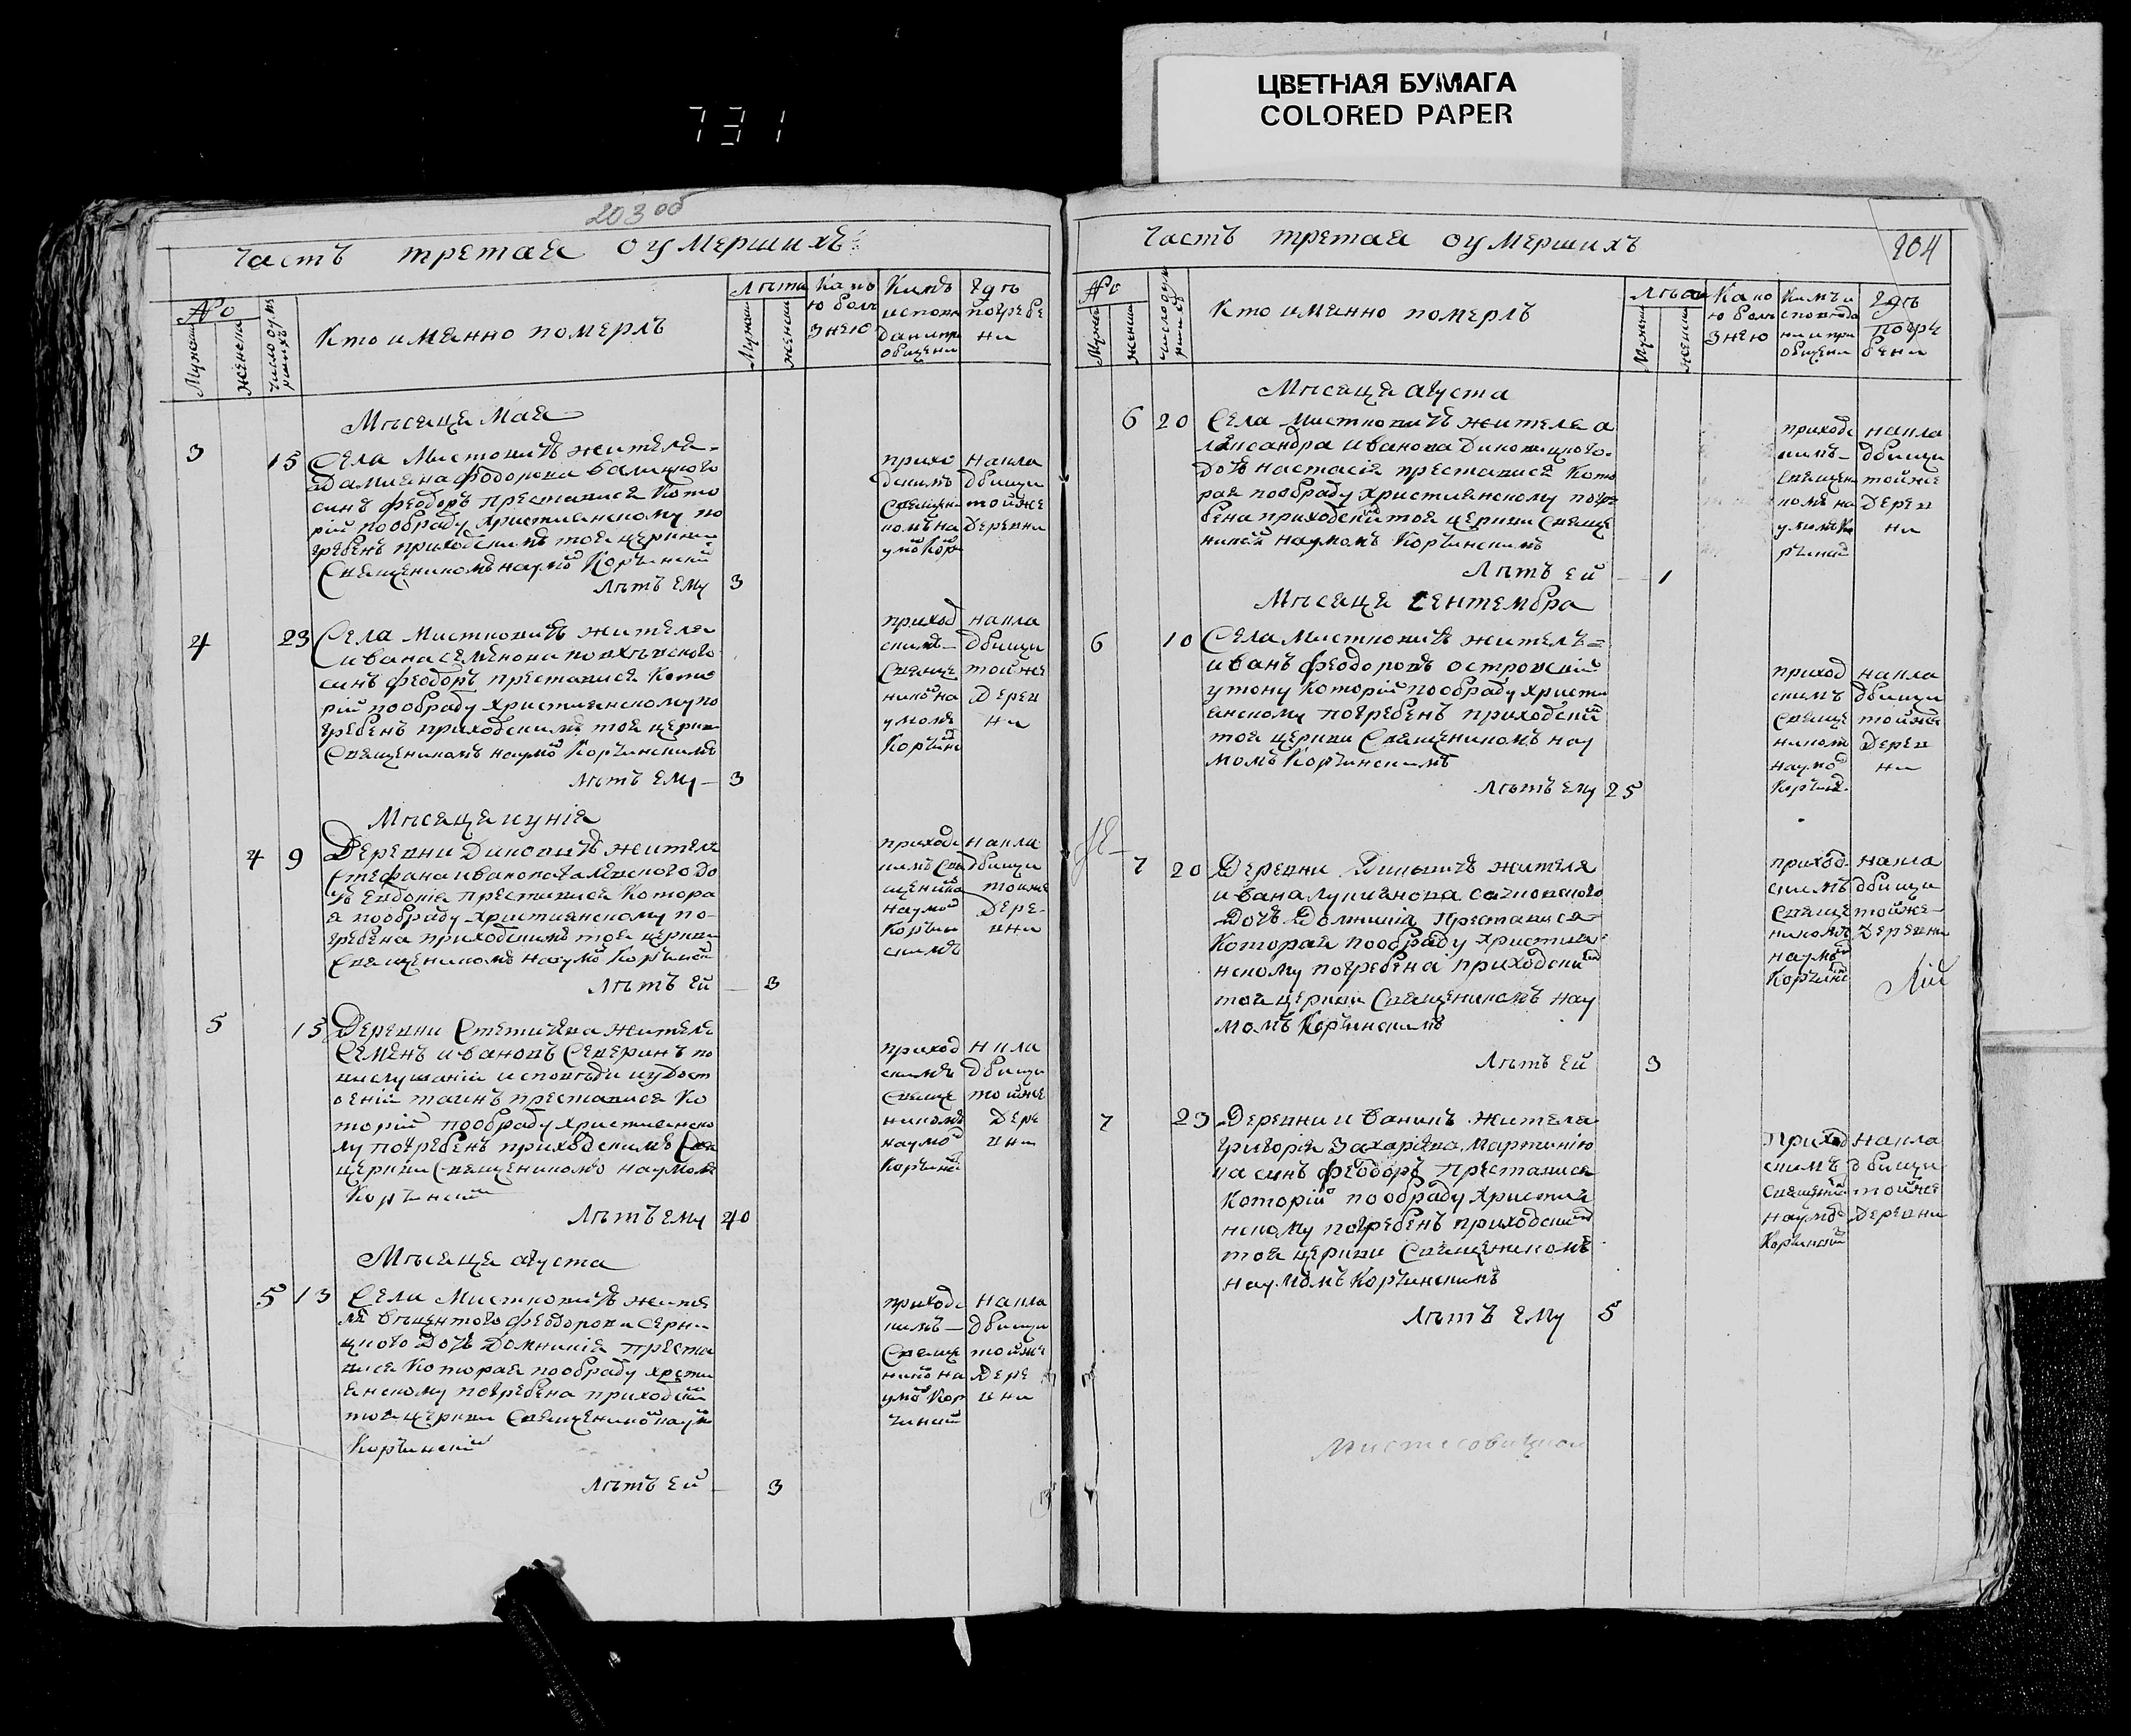 ЦВЕТНАЯ БУМАГА
COLORED PAPER
731
203 об
Часть третая оумершихъ
№
Мужеск
женска
Кто имянно померлъ
Лѣта
Мужеск
женски
Како
ю боле
знею
Кимъ
испове
общени
Гдѣ
погребе
ни
Мѣсяца Мая
3 15 Села Мистовичъ жителя
Дамияна Федорова
синъ Феодоръ преставися Кото
рій пообраду християнскому по
гребенъ приходскимъ тоя церкви
Священикомъ наумо Корчинский
Лѣтъ ему 3
прихо
дскимъ
Священи
комъ на
умо Кор
накла
дбищи
тойже
деревни
4 23 Села Мистковичъ жителя
Ивана Семенова
синъ Феодоръ преставися Кото
рий пообраду християнскому по
гребенъ приходскимъ тоя церкви
Священикомъ наумо Корчинскимъ
Лѣтъ ему 3
приход
скимъ
Свяще
нико на
умомъ
Корчинс
накла
дбищи
тойже
Дерев
ни
Мѣсяца иунія
4 9 Деревни Диковичъ жителя
Стефана Иванова до
чъ Евдокія преставися Котора
я пообраду християнскому по-
гребена приходскимъ тоя церкви
Священикомъ наумо Корчинский
Лѣтъ ей 3
приходс
кимъ Свя
щенико
наумо
Корчин
скимъ
накла
дбищи
тойже
Дере-
вни
5 15 Деревни жителя
Семенъ Ивановъ Северинъ по
вислушаніи исповѣди и удост
оеній таинъ преставися Ко
торій пообраду християнско
му погребенъ приходскимъ
церкви Священикомъ наумомъ
Корчинский
Лѣтъ ему 40
приход
скимъ
Свяще
никомъ
наумо
Корчинс
накла
дбищи
тойже
Дере
вни
Мѣсяца августа
5 13 Села Мистковичъ жите
ля Феодорова
Дочъ Домникія преста
вися Которая пообраду христи
янскому погребена приходский
тоя церкви Священико наумо
Корчинский
Лѣтъ ей 3
приходс
кимъ
Свяще
нико на
умо Кор
чинский
накла
дбищи
тойже
Дере
вни
Часть третая оумершихъ
204
№
Мужеск
женски
Кто имянно померлъ
Лѣта
Мужеск
женски
Како
ю боле
знею
Кимъ и
споведа
ни и при
общени
Гдѣ
Погре
бени
Мѣсяца августа
6 20 Села Мистковичъ жителя а
лександра Иванова Диковицкого
дочъ настасія преставися Кото
рая пообраду християнскому погре
бена приходский тоя церкви Свяще
никой наумомъ Корчинскимъ
Лѣтъ ей 1
приходс
кимъ
Священи
комъ на
умомъ Ко
рчинский
накла
дбищи
тойже
Дерев
ни
Мѣсяца Сентембра
6 10 Села Мистковичъ жителъ
Иванъ Феодоровъ Островский
утону Которій пообраду христи
янскому погребенъ приходский
тоя церкви Священикомъ нау
момъ Корчинскимъ
Лѣтъ ему 25
приход
скимъ
Свяще
никомъ
наумо
Корчинс
накла
дбищи
тойже
Дерев
ни
7 20 Деревни жителя
Ивана Лукиянова
Дочъ Домникія Преставися
Которая пообраду христия
нскому погребена приходски
тоя церкви Священикомъ нау
момъ Корчинскимъ
Лѣтъ ей 3
приход
скимъ
Свяще
никомъ
наумо
Корчинс
накла
дбищи
тойже
Деревни
7 23 Деревни Иваникъ Жителя
Григорія Захаріева Мартинію
ка синъ Феодоръ Преставися
Которій пообраду христия
нскому погребенъ приходский
тоя церкви Священикомъ
наумомъ Корчинскимъ
Лѣтъ ему 5
Приход
скимъ
Священи
наумо
Корчинский
накла
дбищи
тойже
Деревни